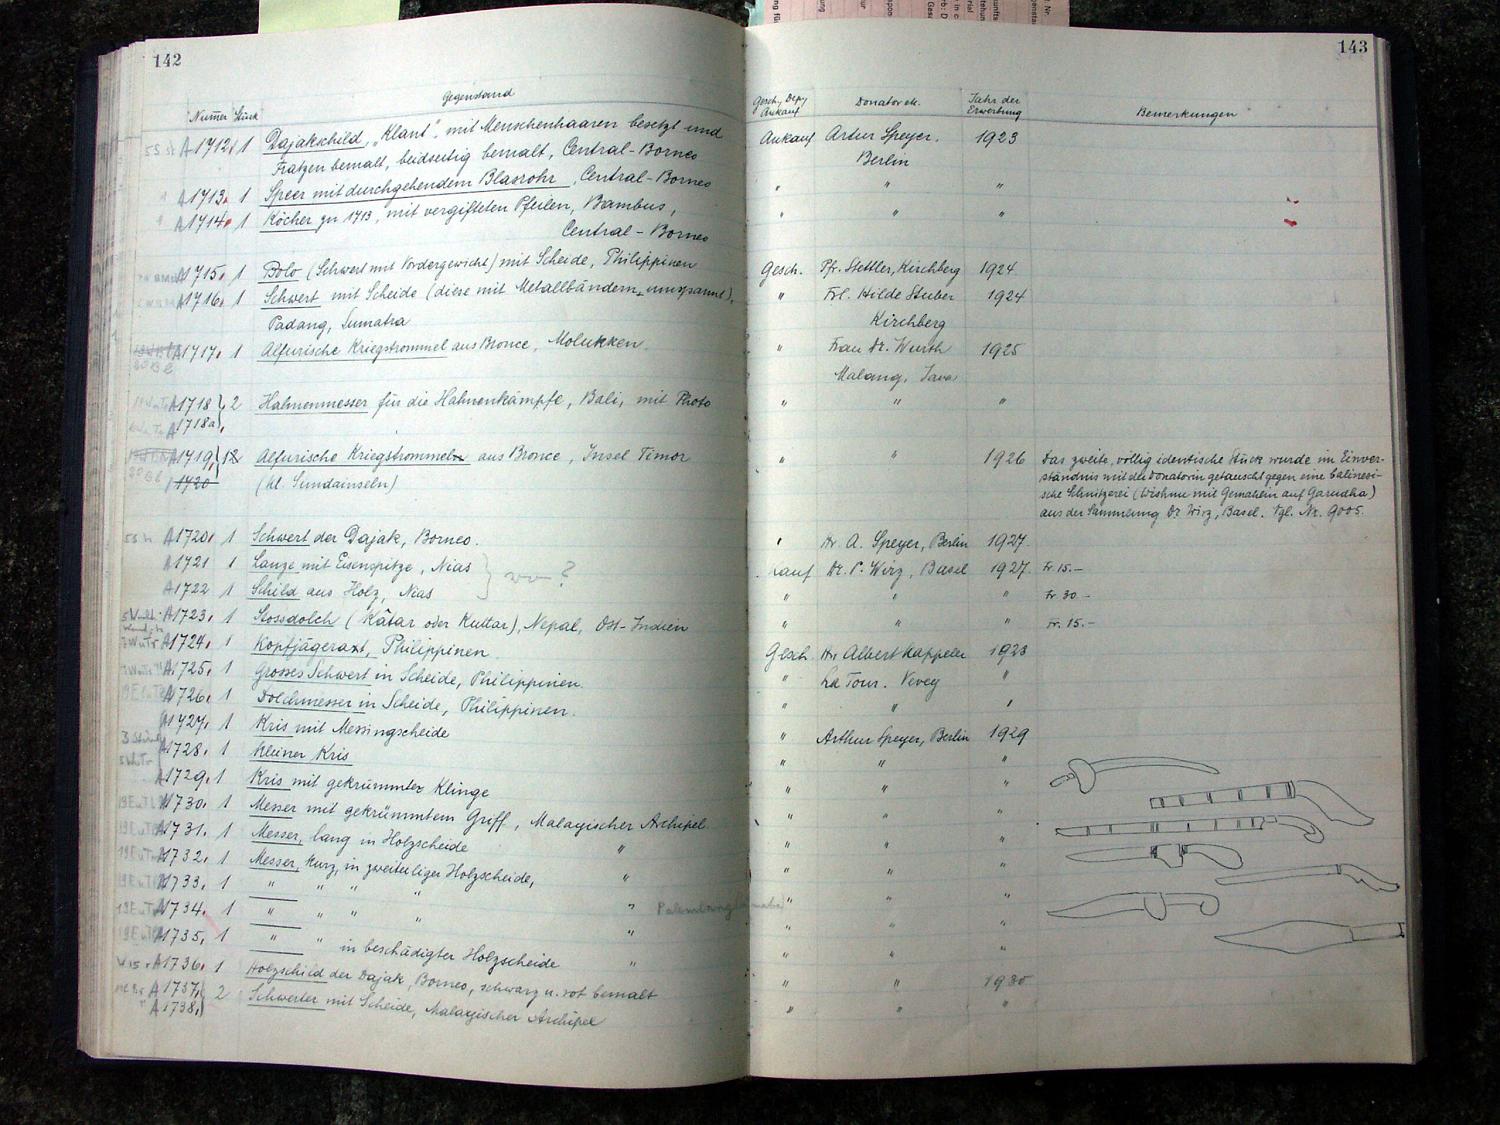 142
Gegenstand
Numer Stück
A1712. 1 Dajakschild, „Klant", mit Menschenhaaren besetzt und
Fratzen bemalt, beidseitig bemalt, Central-Borneo
A1713. 1 Speer mit durchgehendem Blasrohr, Central-Borneo
A1714. 1 Köcher zu 1713, mit vergifteten Pfeilen, Bambus,
Central-Borneo
A1715. 1 Bolo (Schwert mit Vordergewicht) mit Scheide, Philippinen
A1716. 1 Schwert mit Scheide (diese mit Metallbändern umspannt),
Padang, Sumatra
A1717. 1 Alfurische Kriegstrommel aus Bronce, Molukken.
A1718 } 2 Hahnenmesser für die Hahnenkämpfe, Bali, mit Photo
A1718a
A1719 1 Alfurische Kriegstrommel aus Bronce, Insel Timor
1720 (kl. Sundainseln)
A1720. 1 Schwert der Dajak, Borneo.
A1721 1 Lanze mit Eisenspitze, Nias
?
A1722 1 Schild aus Holz, Nias
A1723. 1 Stossdolch (Kâtar oder Kuttar), Nepal, Ost-Indien
A1724. 1 Kopfjägeraxt, Philippinen
A1725. 1 Grosses Schwert in Scheide, Philippinen.
A1726. 1 Dolchmesser in Scheide, Philippinen.
A1727. 1 Kris mit Messingscheide
A1728. 1 Kleiner Kris
A1729. 1 Kris mit gekrümmter Klinge
A1730. 1 Messer mit gekrümmtem Griff, Malayischer Archipel.
A1731. 1 Messer, lang in Holzscheide "
A1732. 1 Messer, kurz, in zweiteiliger Holzscheide, "
A1733. 1 " " " " "
A1734. 1 " " " " " Palembang
A1735. 1 " " in beschädigter Holzscheide "
A1736. 1 Holzschild der Dajak, Borneo, schwarz u. rot bemalt
A1737. } 2 Schwerter mit Scheide, Malayischer Archipel
A1738.
143
Gesch., Dep., Ankauf
Donator etc.
Jahr der Erwerbung
Bemerkungen
Ankauf Artur Speyer. 1923
Berlin
" " "
" " "
Gesch. Pfr. Stettler, Kirchberg 1924
" Frl. Hilde Stuber 1924
Kirchberg
" Frau Dr. Wurth 1925
Malang, Java
" " "
" " 1926 Das zweite, völlig identische Stück wurde im Einver-
ständnis mit der Donatorin getauscht gegen eine balinesi-
sche Schnitzerei (Wishnu mit Gemahlin auf Garudha)
aus der Sammlung Dr Wirz, Basel. Vgl. Nr. 9005.
" Hr. A. Speyer, Berlin 1927.
Kauf Dr. P. Wirz, Basel 1927. Fr. 15.—
" " " Fr 30.—
" " " Fr. 15.—
Gesch. Hr. Albert Kappeler 1928
" La Tour. Vevey "
" " "
" Arthur Speyer, Berlin 1929
" " "
" " "
" " "
" " "
" " "
" " "
" " "
" " "
" " 1930
" " "